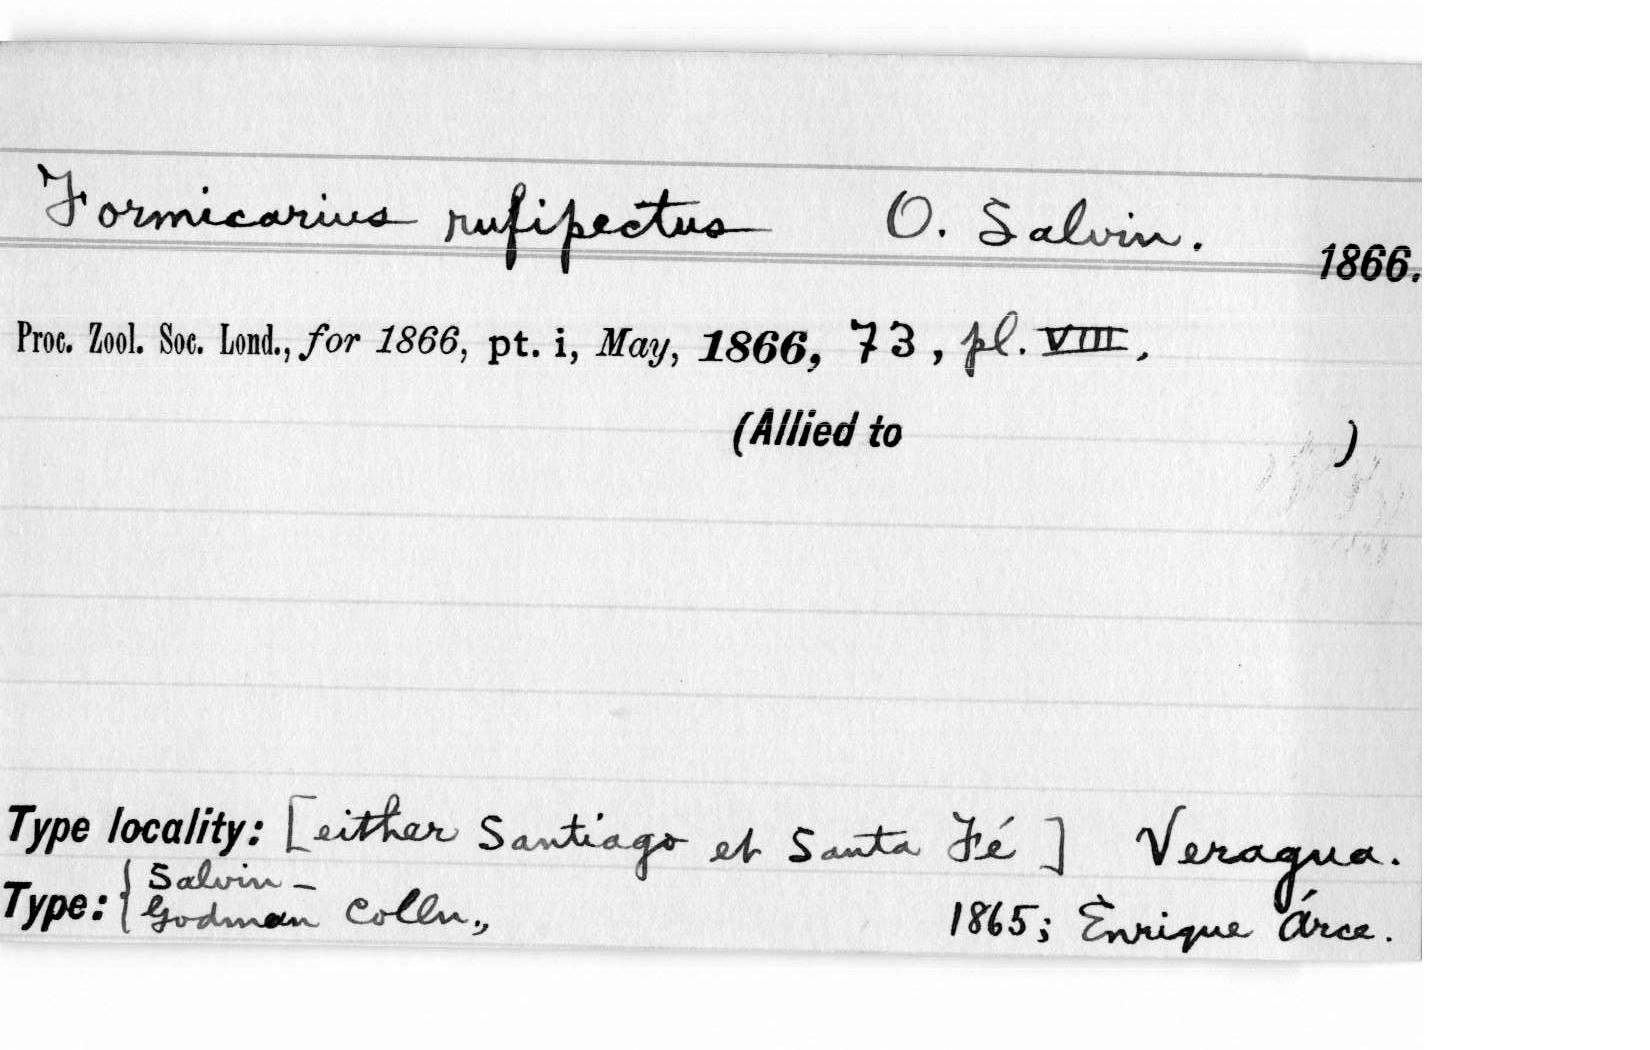 Formicarius rufipectus O. Salvin. 1866.
Proc. Zool. Soc. Lond., for 1866, pt. i, May, 1866, 73, pl. VIII,
(Allied to )
Type locality: [either Santiago et Santa Fé] Veragua.
Type: { Salvin-
Godman Colln., 1865; Enrique Árce.